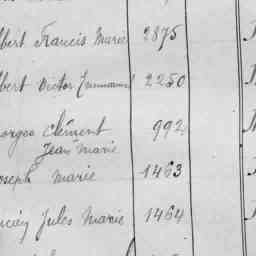 lbert Francis Marie 2875
lbert Victor Emmanuel 2250
orges Clément 992
Jean Marie
oseph Marie 1463
Jules Marie 1464